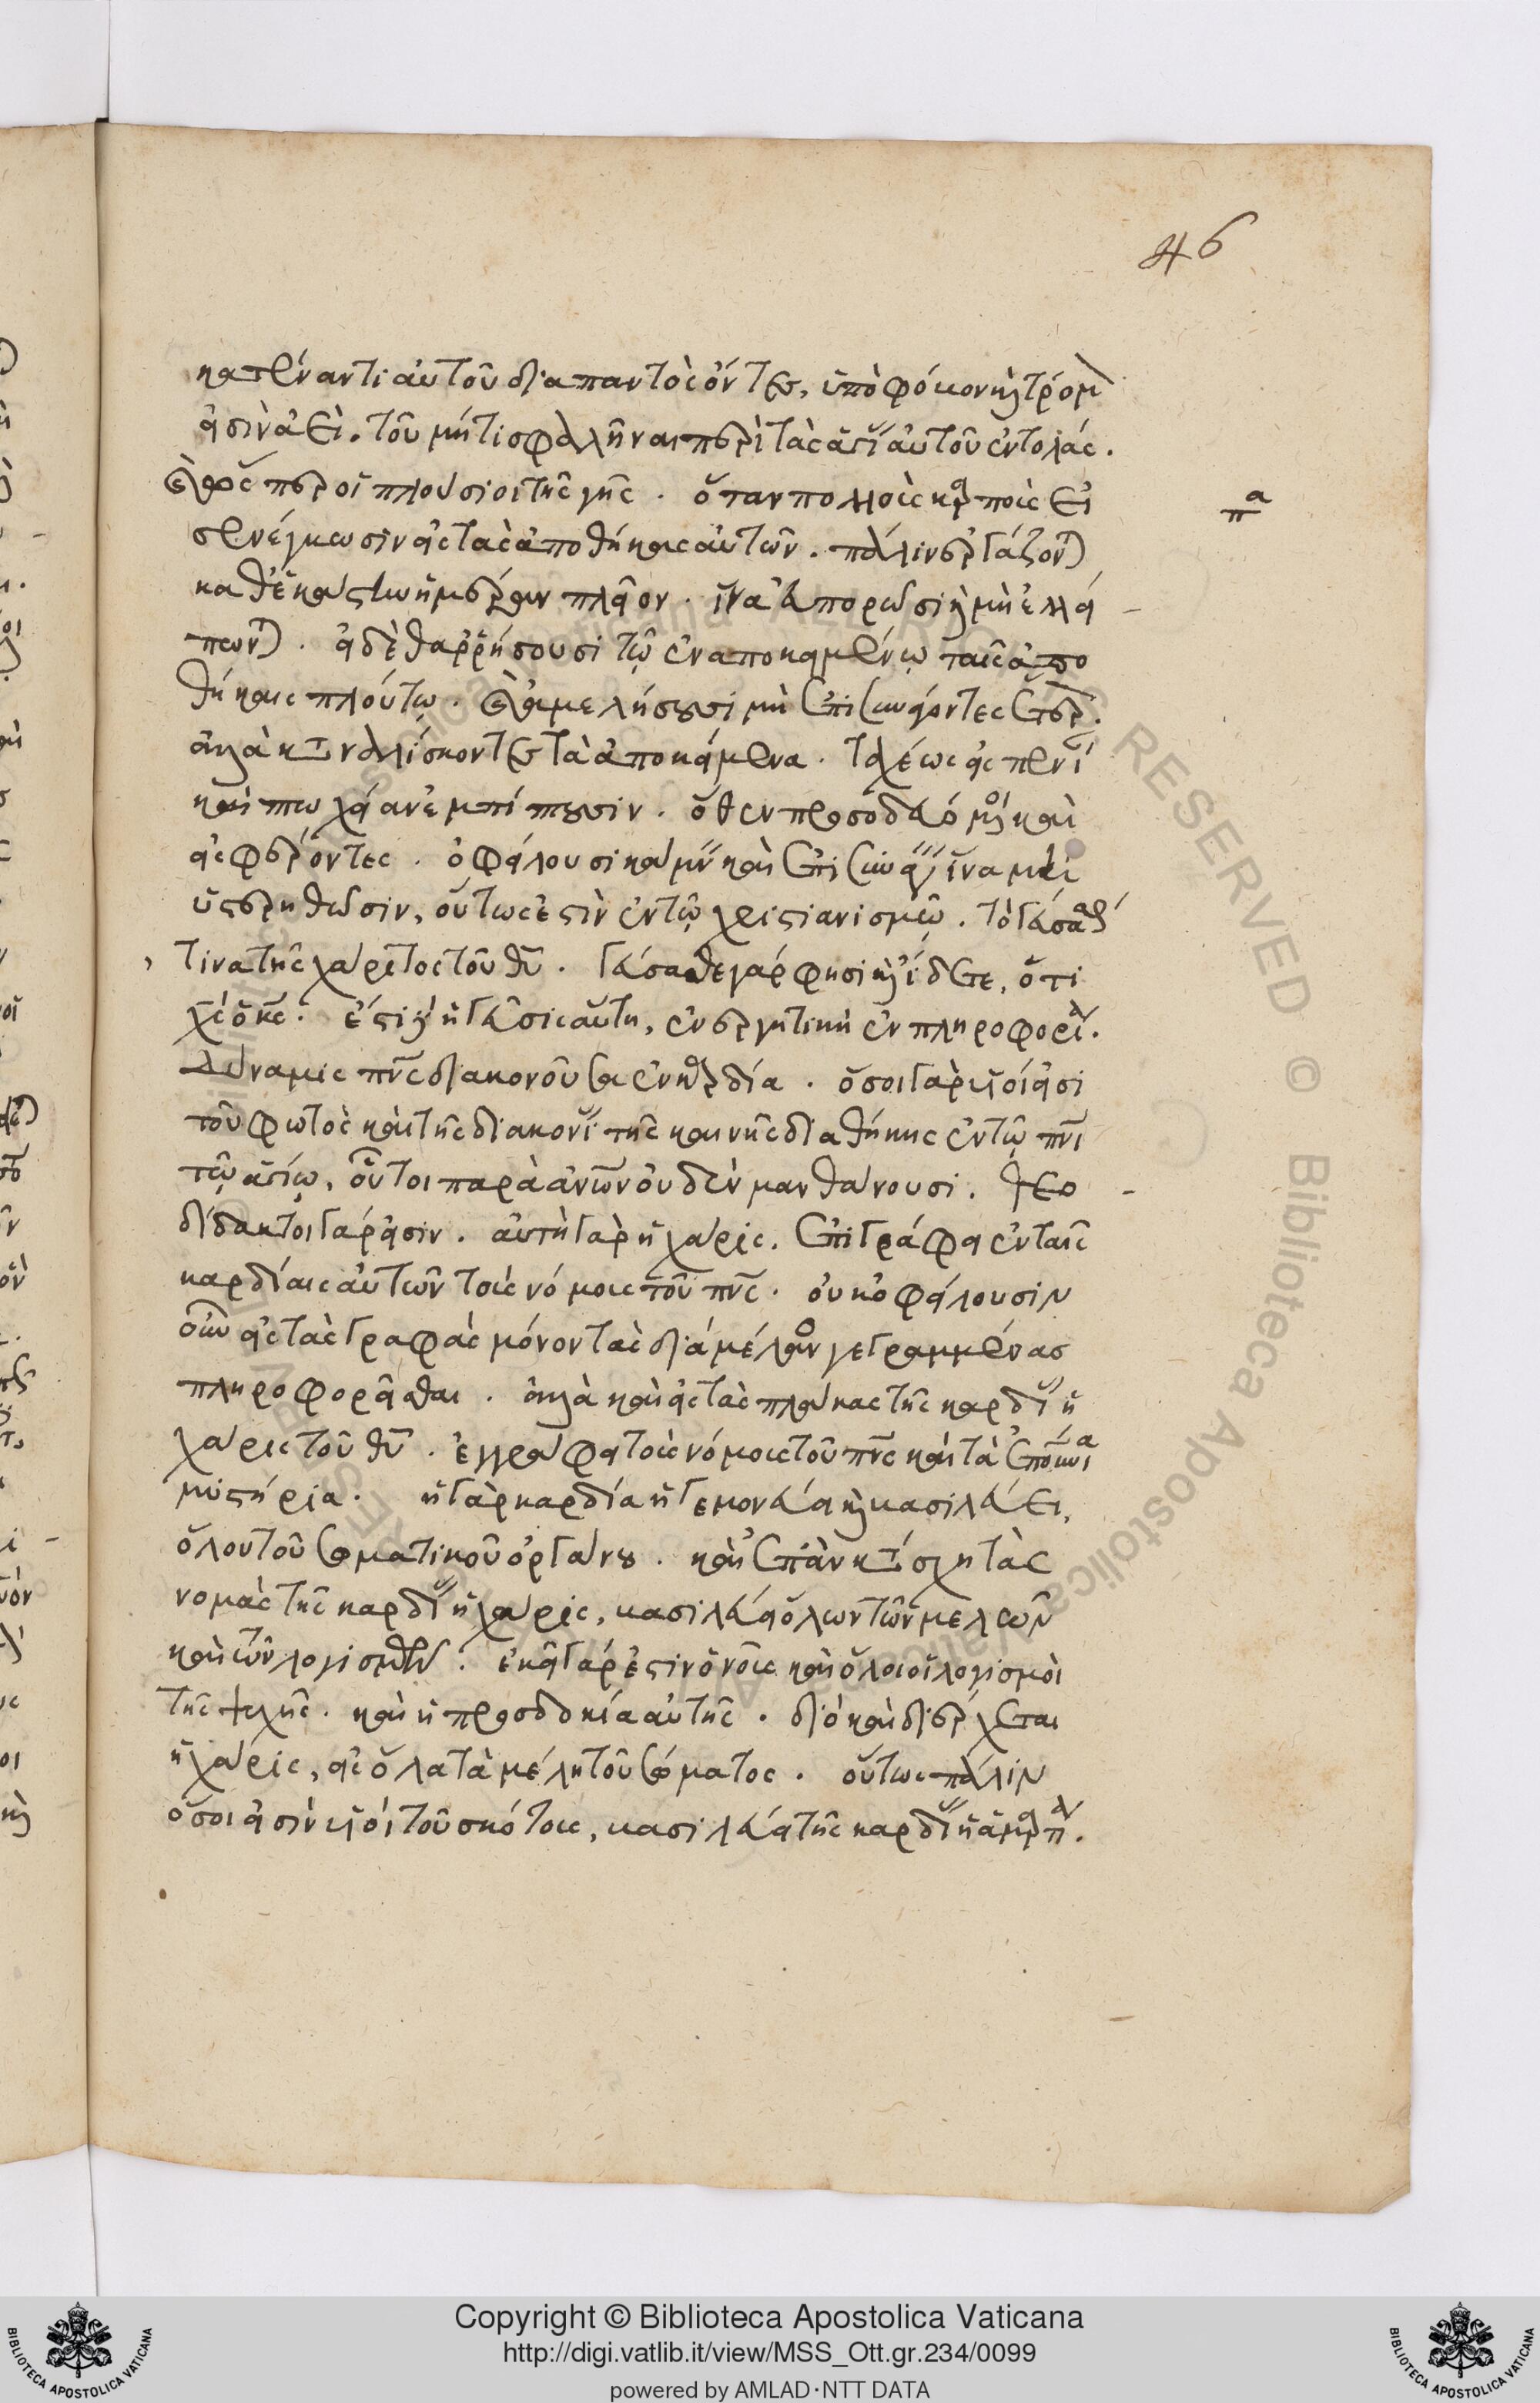 46
κατέναντι αὐτοῦ διαπαντὸς ὄντες, ὑπὸ φόβον καὶ τρόμ
εἰσὶν ἀεὶ. τοῦ μήτι σφαλῆναι περὶ τὰς ἁγί αὐτοῦ ἐντολάς.
πα
ὥσπερ οἱ πλούσιοι τῆς γῆς. ὅταν πολλοὺς καρποὺς εἰ
σενέγκωσιν εἰς τὰς ἀποθήκας αὐτῶν. πάλιν ἐργάζον
καθεκάστην ἡμέραν πλεῖον. ἵνα εὐπορῶσι καὶ μὴ ἐλλεί
πων. εἰ δὲ θαρρήσουσι τῷ ἐναποκειμένῳ ταῖς ἀπο
θήκαις πλούτῳ. καὶ ἀμελήσουσι μὴ ἐπισυνάγοντες
ἀλλὰ καταναλίσκοντες τὰ ἀποκείμενα. ταχέως εἰς πενί
καὶ πτωχείαν ἐμπίπτουσιν. ὅθεν προσοδευόμ καὶ
εἰσφέροντες. ὀφείλουσι κάμν καὶ ἐπισυνάγ ἵνα μὴ
ὑστερηθῶσιν, οὕτως ἐστὶν ἐν τῷ χριστιανισμῷ. τὸ γεύσασθ
τινα τῆς χάριτος τοῦ θυ. γεύσασθε γάρ φησι καὶ ἴδετε, ὅτι
χς ὁ κς. ἔστι δὲ ἡ γεῦσις αὕτη, ἐνεργητικὴ ἐν πληροφορία.
δύναμις πνς διακονοῦσα ἐν καρδία. ὅσοι γὰρ υἱοί εἰσι
τοῦ φωτὸς καὶ τῆς διακονί τῆς καινῆς διαθήκης ἐν τῷ πνι
τῷ ἁγίῳ, οὗτοι παρὰ ἀνων οὐδὲν μανθάνουσι. θεο
δίδακτοι γάρ εἰσιν. αὐτὴ γὰρ ἡ χάρις. ἐπιγράφει ἐν ταῖς
καρδίαις αὐτῶν τοὺς νόμους τοῦ πνς. οὐκ ὀφείλουσιν
οὖν εἰς τὰς γραφὰς μόνον τὰς διὰ μέλανος γεγραμμένας
πληροφορεῖσθαι. ἀλλὰ καὶ εἰς τὰς πλάκας τῆς καρδί ἡ
χάρις τοῦ θυ. ἐγγράφει τοὺς νόμους τοῦ πνς καὶ τὰ ἐπουνια
μυστήρια. ἡ γὰρ καρδία ἡγεμονεύει καὶ βασιλεύει,
ὅλου τοῦ σωματικοῦ ὀργάνου. καὶ ἐπὰν κατάσχη τὰς
νομὰς τῆς καρδί ἡ χάρις, βασιλεύει ὅλων τῶν μελῶν
καὶ τῶν λογισμῶν. ἐκεῖ γάρ ἐστιν ὁ νοῦς καὶ ὅλοι οἱ λογισμοὶ
τῆς ψυχῆς. καὶ ἡ προσδοκία αὐτῆς. διὸ καὶ διέρχεται
ἡ χάρις, εἰς ὅλα τὰ μέλη τοῦ σώματος. οὕτως πάλιν
ὅσοι εἰσὶν υἱοὶ τοῦ σκότους, βασιλεύει τῆς καρδί ἡ ἁμαρτία.
BIBLIOTECA APOSTOLICA VATICANA
Copyright © Biblioteca Apostolica Vaticana
http://digi.vatlib.it/view/MSS_Ott.gr.234/0099
powered by AMLAD·NTT DATA
BIBLIOTECA APOSTOLICA VATICANA